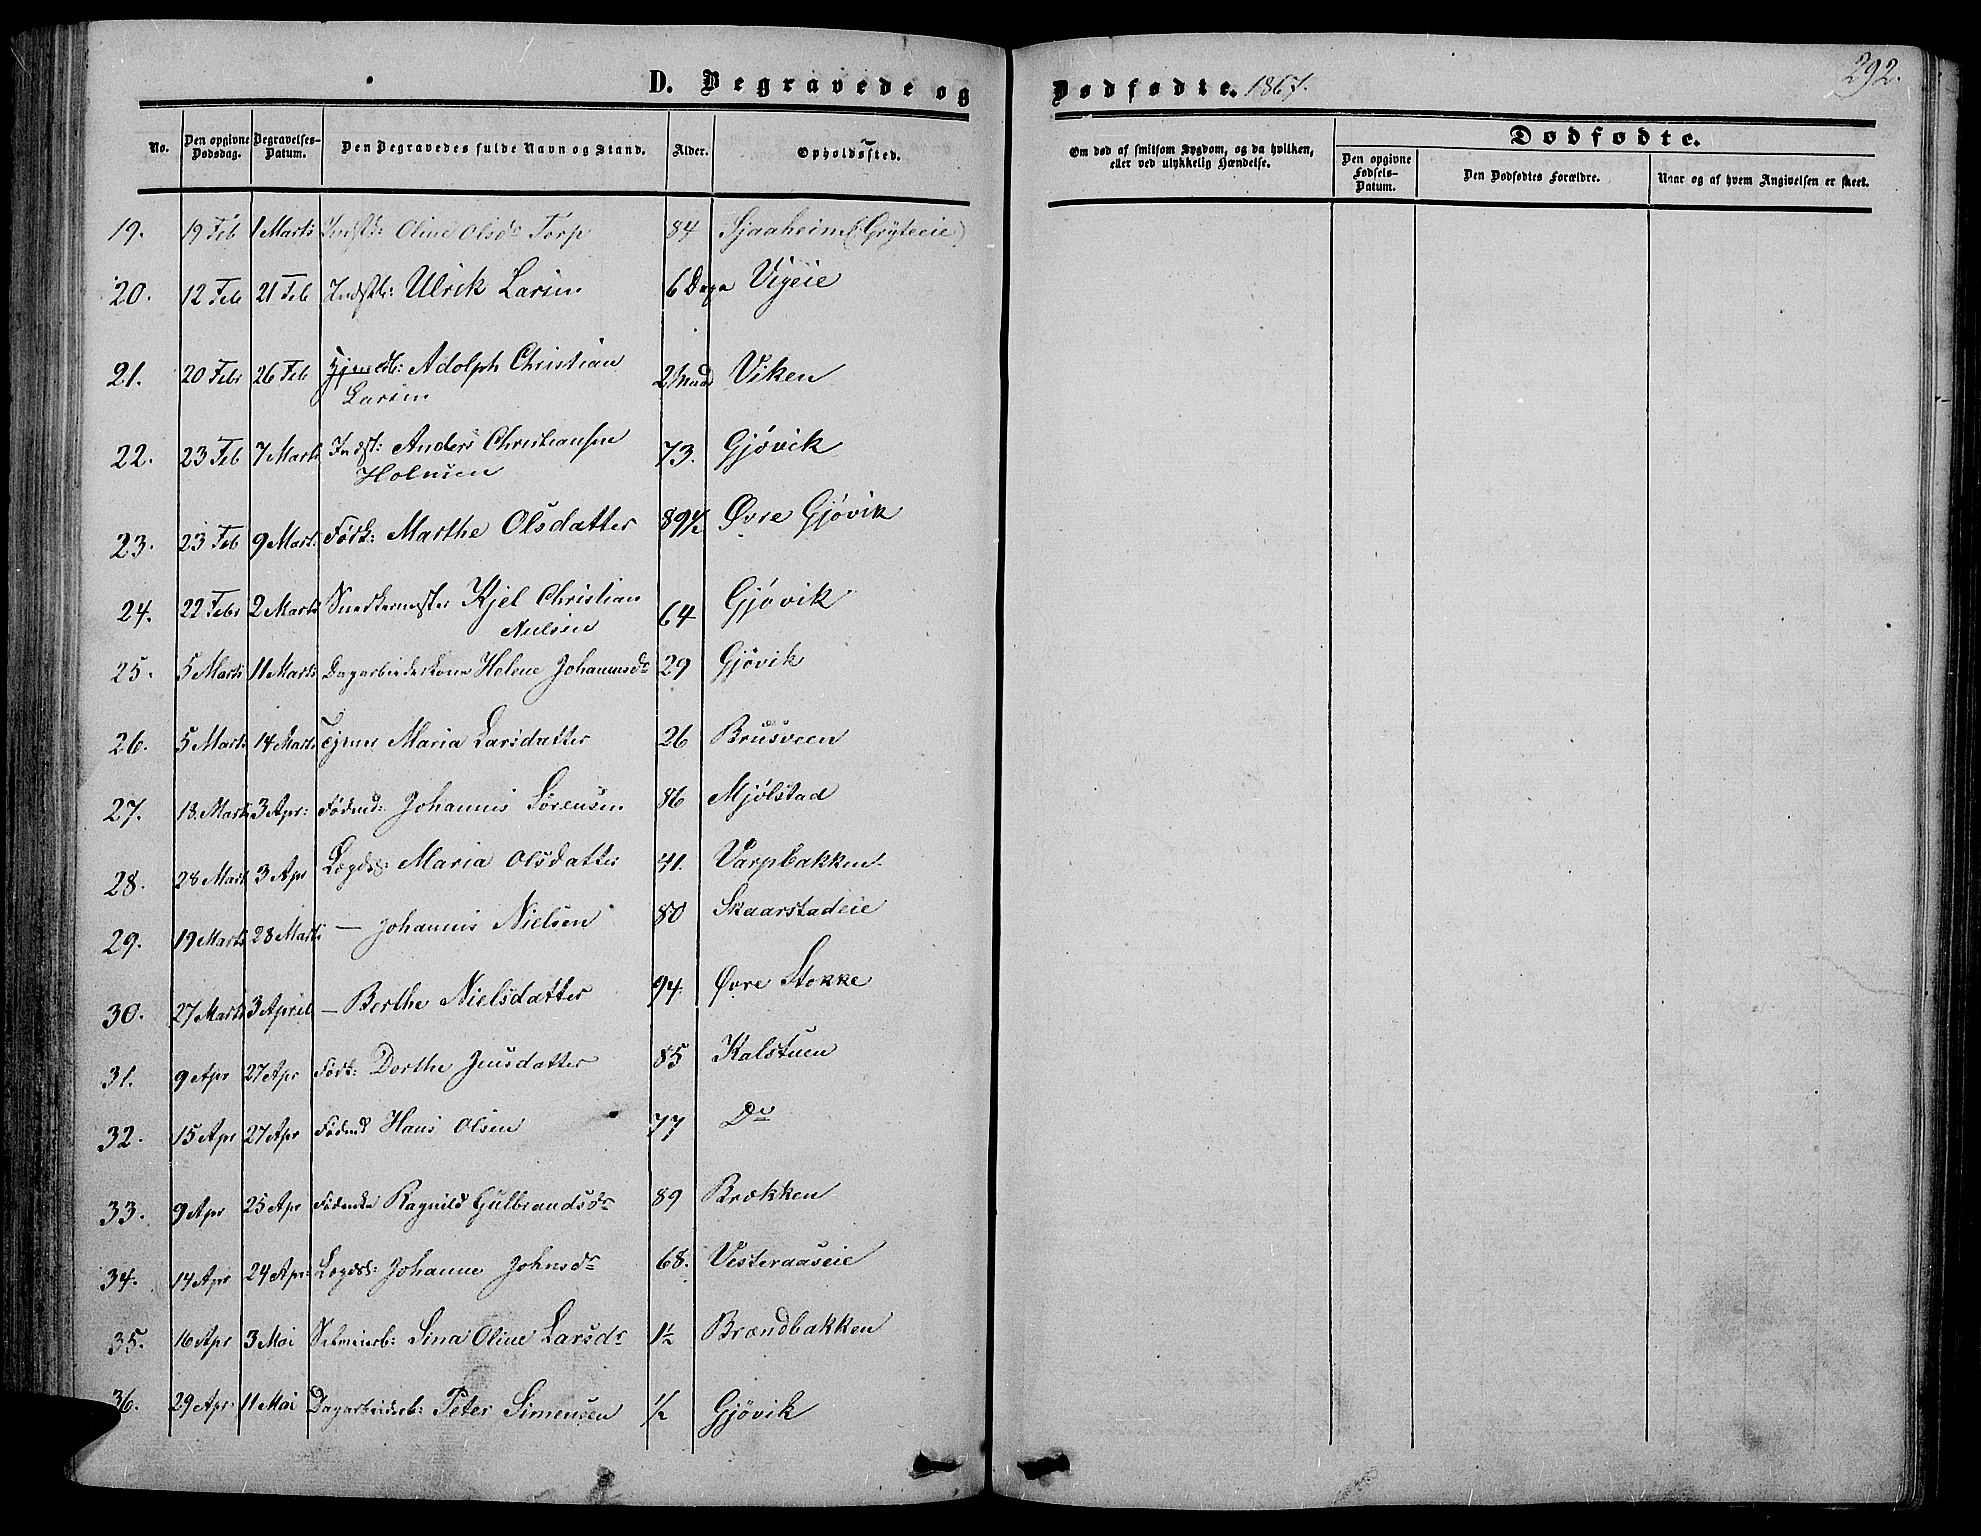 D. Begravede og Dødfødte. 1867. 292.
No. Den opgivne Dødsdag. Begravelses-Datum. Den Begravedes fulde Navn og Stand. Alder. Opholdssted. Om død af smitsom Sygdom, og da hvilken, eller ved ulykkelig Hændelse. Dødfødte.
Den opgivne Fødsels-Datum. Den Dødfødtes Forældre. Naar og af hvem Angivelsen er skeet.
19. 19 Feb 1 Marts Indst: Oline Olsdr Torp 84 Sjaaheim (Gryteeie)
20. 12 Feb 21 Feb Indstb: Ulrik Larsen 6 Dage Vigeie
21. 20 Febr 26 Feb Tjenesteb: Adolph Christian 2 Mnd Viken
Larsen
22. 23 Feb 7 Marts Indst: Anders Christiansen 73. Gjøvik
Holmsen
23. 23 Feb 9 Mart. Førk: Marthe Olsdatter 89 1/2 Øvre Gjøvik
24. 22 Febr 2 Marts Snedkermester Kjel Christian 64 Gjøvik
Nielsen
25. 5 Marts 11 Marts Dagarbeiderkone Helene Johannesdr 29 Gjøvik
26. 5 Marts 14 Marts Tjener Maria Larsdatter 26 Brusveen
27. 18. Marts 3 Apr: Fødemd: Johannes Sørensen 86 Mjølstad
28. 28 Mart 3 Apr Lægdsl: Maria Olsdatter 41. Varpbakken
29. 19 Marts 28 Marts — Johannes Nielsen 80 Skaarstadeie
30. 27 Marts 3 April — Berthe Nielsdatter 94. Øvre Stokke
31. 9 Apr 27 Apr Førk: Dorthe Jensdatter 85 Kalstuen
32. 15 Apr 27 Apr Fødemd Hans Olsen 77 Do
33. 9 Apr 25 Apr Ragnild Gulbrandsdr 89 Brækken
34. 14 Apr 24 Apr: Lægdsl: Johanne Johnsdr 68. Vesteraaseie
35. 16 Apr 3 Mai Selveierb: Sina Oline Larsdr 1 1/2 Brændbakken
36. 29 Apr 11 Mai Dagarbeiderb: Peter Simensen 1/2 Gjøvik